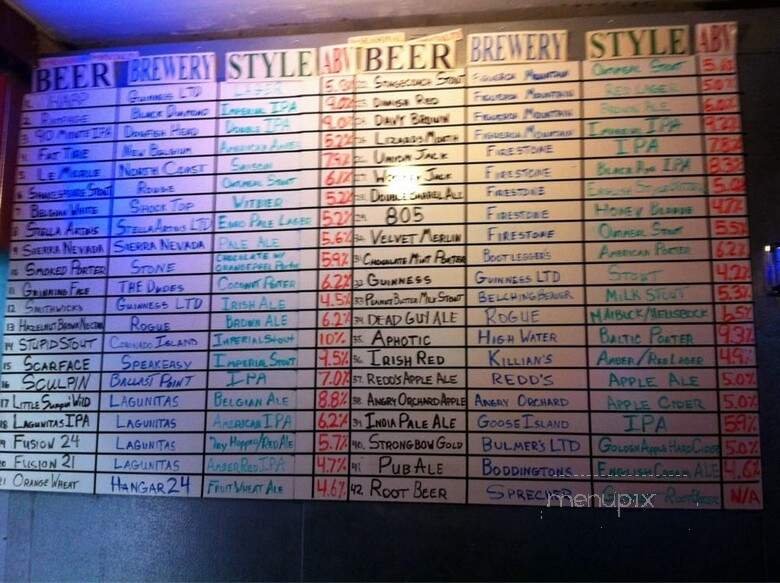 BEER BREWERY STYLE ABV
1. HARP GUINNESS LTD LAGER 5.0%
2. RAMPAGE BLACK DIAMOND IMPERIAL IPA
3. 90 MINUTE IPA DOGFISH HEAD DOUBLE IPA 9.0%
4. FAT TIRE NEW BELGIUM AMERICAN AMBER 5.2%
5. LE MERLE NORTH COAST SAISON
6. SHAKESPEARE STOUT ROGUE OATMEAL STOUT
7 BELGIAN WHITE SHOCK TOP WITBIER 5.2%
8 STELLA ARTOIS STELLA ARTOIS LTD EURO PALE LAGER 5.2%
9 SIERRA NEVADA SIERRA NEVADA PALE ALE 5.6%
10 SMOKED PORTER STONE CHOCOLATE W/ ORANGE PEEL PORTER 5.9%
11 GRINNING FACE THE DUDES COCONUT PORTER 6.2%
12 SMITHWICKS GUINNESS LTD IRISH ALE 4.5%
13 HAZELNUT BROWN NECTAR ROGUE BROWN ALE 6.2%
14 STUPID STOUT CORONADO ISLAND IMPERIAL STOUT 10%
15 SCARFACE SPEAKEASY IMPERIAL STOUT 9.5%
16 SCULPIN BALLAST POINT IPA 7.0%
17 LITTLE SUMPIN' WILD LAGUNITAS BELGIAN ALE 8.8%
18 LAGUNITAS IPA LAGUNITAS AMERICAN IPA 6.2%
19 FUSION 24 LAGUNITAS DRY HOPPED/RED ALE 5.7%
20 FUSION 21 LAGUNITAS AMBER RED IPA 4.7%
21 ORANGE WHEAT HANGAR 24 FRUIT WHEAT ALE 4.6%
BEER BREWERY STYLE ABV
STAGECOACH STOUT FIGUEROA MOUNTAIN OATMEAL STOUT
DANISH RED FIGUEROA MOUNTAIN RED LAGER
DAVY BROWN FIGUEROA MOUNTAIN BROWN ALE 6.0%
LIZARDS MOUTH FIGUEROA MOUNTAIN IMPERIAL IPA
UNION JACK FIRESTONE IPA
WOOKEY JACK FIRESTONE BLACK RYE IPA 8.3%
28. DOUBLE BARREL ALE FIRESTONE ENGLISH STYLE 5.0%
29. 805 FIRESTONE HONEY BLONDE 4.7%
30. VELVET MERLIN FIRESTONE OATMEAL STOUT 5.5%
31. CHOCOLATE MINT PORTER BOOTLEGGERS AMERICAN PORTER 6.2%
32 GUINNESS GUINNESS LTD STOUT 4.2%
33 PEANUT BUTTER MILK STOUT BELCHING BEAVER MILK STOUT 5.3%
34. DEAD GUY ALE ROGUE MAIBOCK/HELLESBOCK 6.5%
35. APHOTIC HIGH WATER BALTIC PORTER 9.3%
36. IRISH RED KILLIAN'S AMBER/RED LAGER 4.9%
37. REDD'S APPLE ALE REDD'S APPLE ALE 5.0%
38. ANGRY ORCHARD APPLE ANGRY ORCHARD APPLE CIDER 5.0%
39. INDIA PALE ALE GOOSE ISLAND IPA 5.9%
40. STRONGBOW GOLD BULMER'S LTD GOLDEN APPLE HARD CIDER 5.0%
41. PUB ALE BODDINGTONS ENGLISH CREAM ALE 4.6%
42. ROOT BEER SPRECHER ROOT BEER N/A
menupix